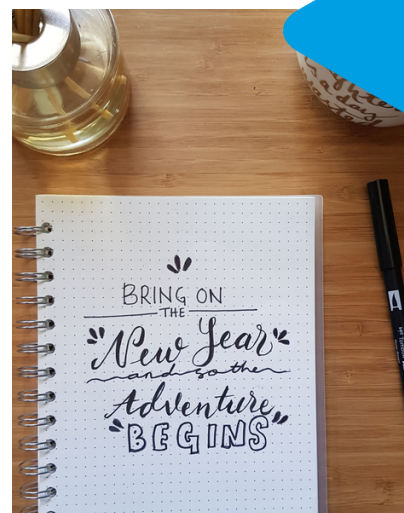 BRING ON
THE
New Year
and so the
Adventure
BEGINS